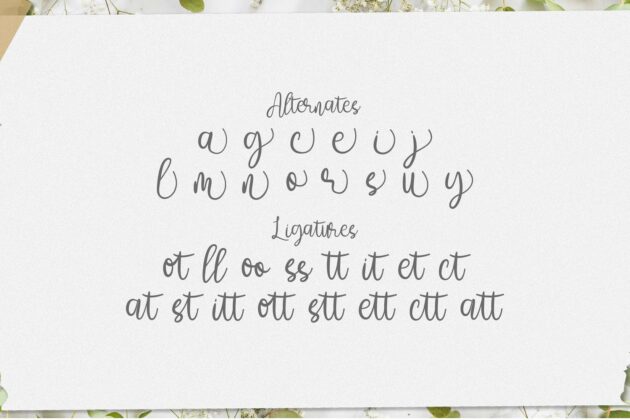 Alternates
a g c e i j
l m n o r s u y
Ligatures
ot ll oo ss tt it et ct
at st itt ott stt ett ctt att